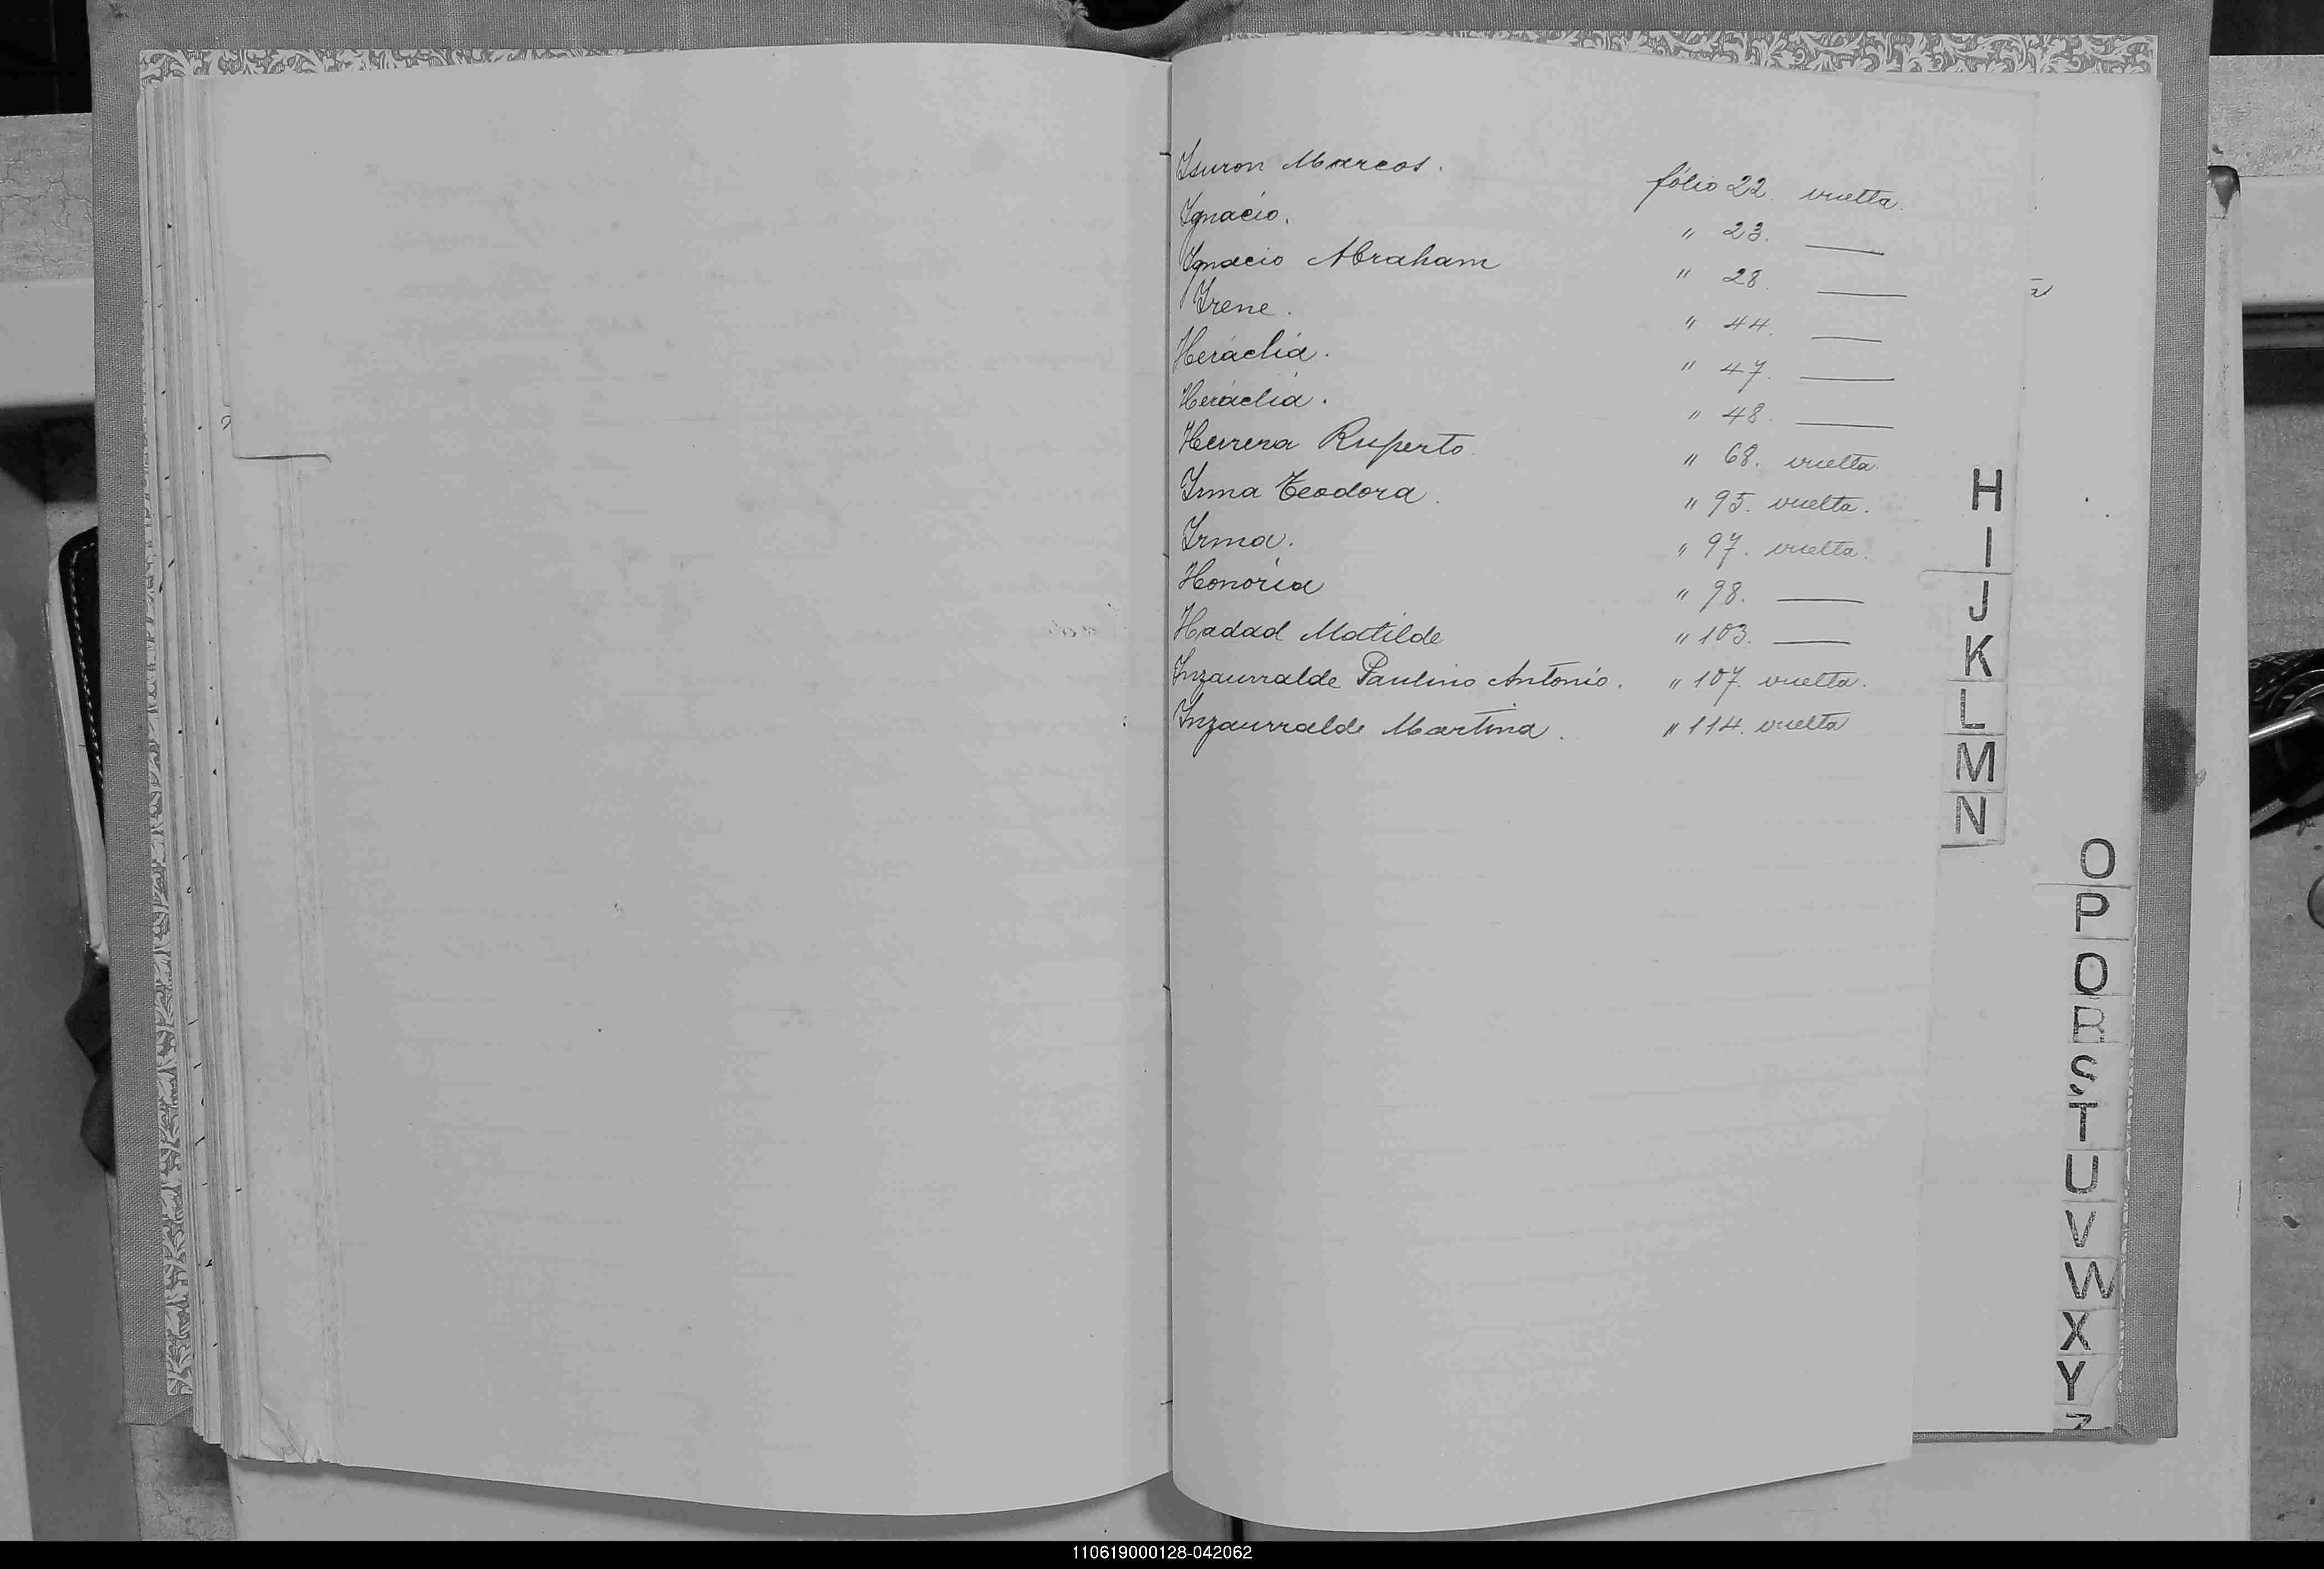 Isuron Marcos. fólio 22. vuelta.
Ignacio. " 23. ——
Ignacio Abraham " 28. ——
Irene. " 44. ——
Heráclia. " 47. ——
Heráclia. " 48. ——
Herrera Ruperto. " 68. vuelta.
Irma Teodora. " 95. vuelta.
Irma. " 97. vuelta.
Honoria " 98. ——
Hadad Matilde " 103. ——
Inzaurralde Paulino Antonio. " 107. vuelta.
Inzaurralde Martina. " 114. vuelta
H
I
J
K
L
M
N
O
P
Q
R
S
T
U
V
W
X
Y
Z
110619000128-042062